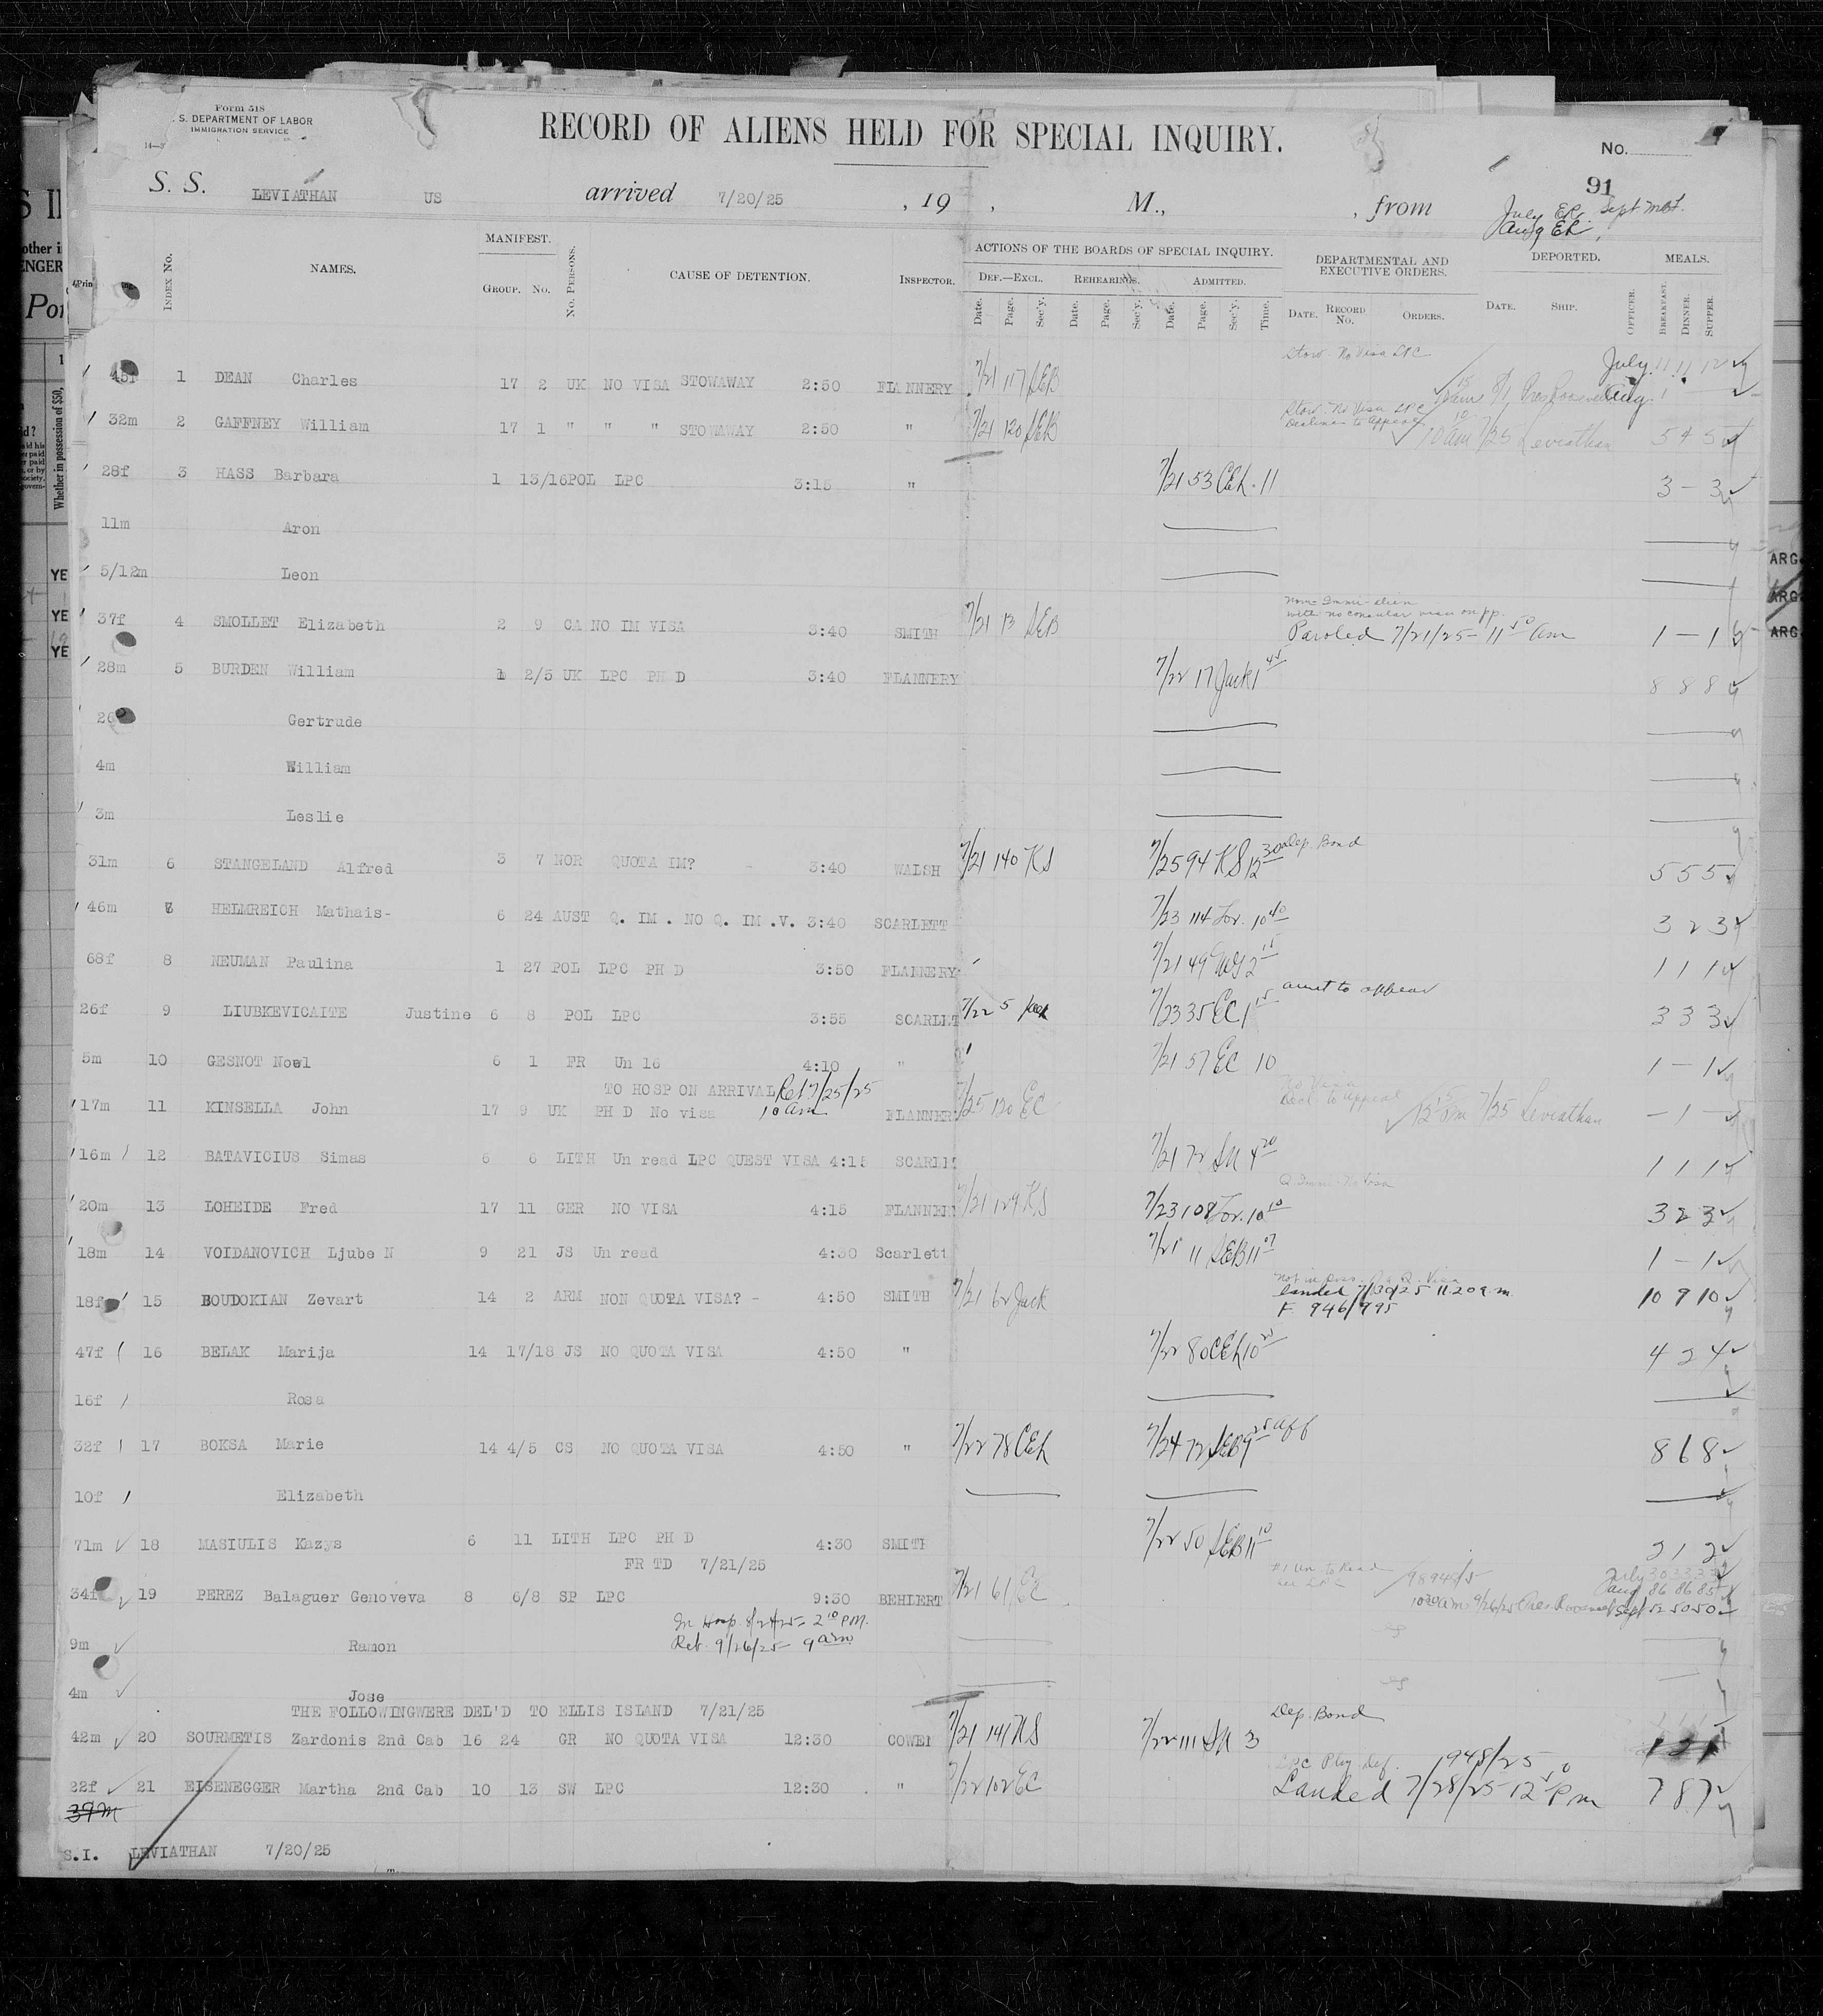 Form 518
S. DEPARTMENT OF LABOR
IMMIGRATION SERVICE
RECORD OF ALIENS HELD FOR SPECIAL INQUIRY.
No.
91
S. S. LEVIATHAN US arrived 7/20/25 , 19 , M., , from
July ER. Sept. Mbt.
Aug ER,
INDEX No. NAMES. MANIFEST. GROUP. No. No. PERSONS. CAUSE OF DETENTION. INSPECTOR. ACTIONS OF THE BOARDS OF SPECIAL INQUIRY. DEPARTMENTAL AND EXECUTIVE ORDERS. DEPORTED. MEALS.
DEF.—EXCL. REHEARINGS. ADMITTED.
Date. Page. Sec'y. Date. Page. Sec'y. Date. Page. Sec'y. Time. DATE. RECORD No. ORDERS. DATE. SHIP. OFFICER. BREAKFAST. DINNER. SUPPER.
Stow. No Visa LPC
July 11 11 12
45f 1 DEAN Charles 17 2 UK NO VISA STOWAWAY 2:50 FLANNERY 7/21 117 SEB 8/1 Pres Roosevelt Aug 1
Stow. No Visa LPC
Declines to appeal
32m 2 GAFFNEY William 17 1 " " " STOWAWAY 2:50 " 7/21 120 SEB 10 am 7/25 Leviathan 5 4 5
28f 3 HASS Barbara 1 13/16 POL LPC 3:15 " 7/21 53 CEh. 11 3 – 3
11m Aron
5/12m Leon
Non-Immi-alien
with no consular visa on pp.
37f 4 SMOLLET Elizabeth 2 9 CA NO IM VISA 3:40 SMITH 7/21 13 SEB Paroled 7/21/25 – 11 50 am 1 – 1
28m 5 BURDEN William 1 2/5 UK LPC PH D 3:40 FLANNERY 7/22 17 Jack 1 45 8 8 8
26 Gertrude
4m William
3m Leslie
31m 6 STANGELAND Alfred 3 7 NOR QUOTA IM? - 3:40 WALSH 7/21 140 KS 7/25 94 KS 12 30 Dep. Bond 5 5 5
46m 7 HELMREICH Mathais- 6 24 AUST Q. IM . NO Q. IM .V. 3:40 SCARLETT 7/23 114 For. 10 40 3 2 3
68f 8 NEUMAN Paulina 1 27 POL LPC PH D 3:50 FLANNERY 7/21 49 2 15 1 1 1
26f 9 LIUBKEVICAITE Justine 6 8 POL LPC 3:55 SCARLET 7/22 5 Jack 7/23 35 EC 1 15 to appear 3 3 3
5m 10 GESNOT Noel 6 1 FR Un 16 4:10 " 7/21 57 EC 10 1 – 1
TO HOSP ON ARRIVAL Ret 7/25/25
No Visa
Decl. to appeal
17m 11 KINSELLA John 17 9 UK PH D No visa 10 am FLANNER 7/25 120 EC 7/25 Leviathan – 1 –
16m 12 BATAVICIUS Simas 6 6 LITH Un read LPC QUEST VISA 4:15 SCARLET 7/21 72 SN 4 20 1 1 1
Q. Immi- No Visa
20m 13 LOHEIDE Fred 17 11 GER NO VISA 4:15 FLANNER 7/21 129 KS 7/23 108 For. 10 10 3 2 3
18m 14 VOIDANOVICH Ljube N 9 21 JS Un read 4:30 Scarlett 7/21 11 SEB 11 07 1 – 1
18f 15 BOUDOKIAN Zevart 14 2 ARM NON QUOTA VISA? - 4:50 SMITH 7/21 62 Jack landed 7/30/25 11 20 a.m. 10 9 10
F. 946/995
47f 16 BELAK Marija 14 17/18 JS NO QUOTA VISA 4:50 " 7/22 80 CEh 10 25 4 2 4
16f Rosa
32f 17 BOKSA Marie 14 4/5 CS NO QUOTA VISA 4:50 " 7/22 78 CEh 7/24 72 SEB 9 25 Aff 8 6 8
10f Elizabeth
71m 18 MASIULIS Kazys 6 11 LITH LPC PH D 4:30 SMITH 7/22 50 SEB 11 10 2 1 2
FR TD 7/21/25
#1 Un to Read
34f 19 PEREZ Balaguer Genoveva 8 6/8 SP LPC 9:30 BEHLERT 7/21 61 EC 98948/5 July 30 33 33
Aug 86 86 85
9/26/25 Pres. Roosevelt Sept 52 50 50
In Hosp. 8/24/25 – 2 10 P.M.
Ret. 9/26/25 – 9 am
9m Ramon
4m Jose
THE FOLLOWINGWERE DEL'D TO ELLIS ISLAND 7/21/25
Dep. Bond
42m 20 SOURMETIS Zardonis 2nd Cab 16 24 GR NO QUOTA VISA 12:30 COWEN 7/21 141 KS 7/22 111 SN 3 1 2 1
LPC Phy Def. 1948/25
22f 21 EISENEGGER Martha 2nd Cab 10 13 SW LPC 12:30 " 7/22 102 EC Landed 7/28/25 12 50 Pm 7 8 7
39m
S.I. LEVIATHAN 7/20/25